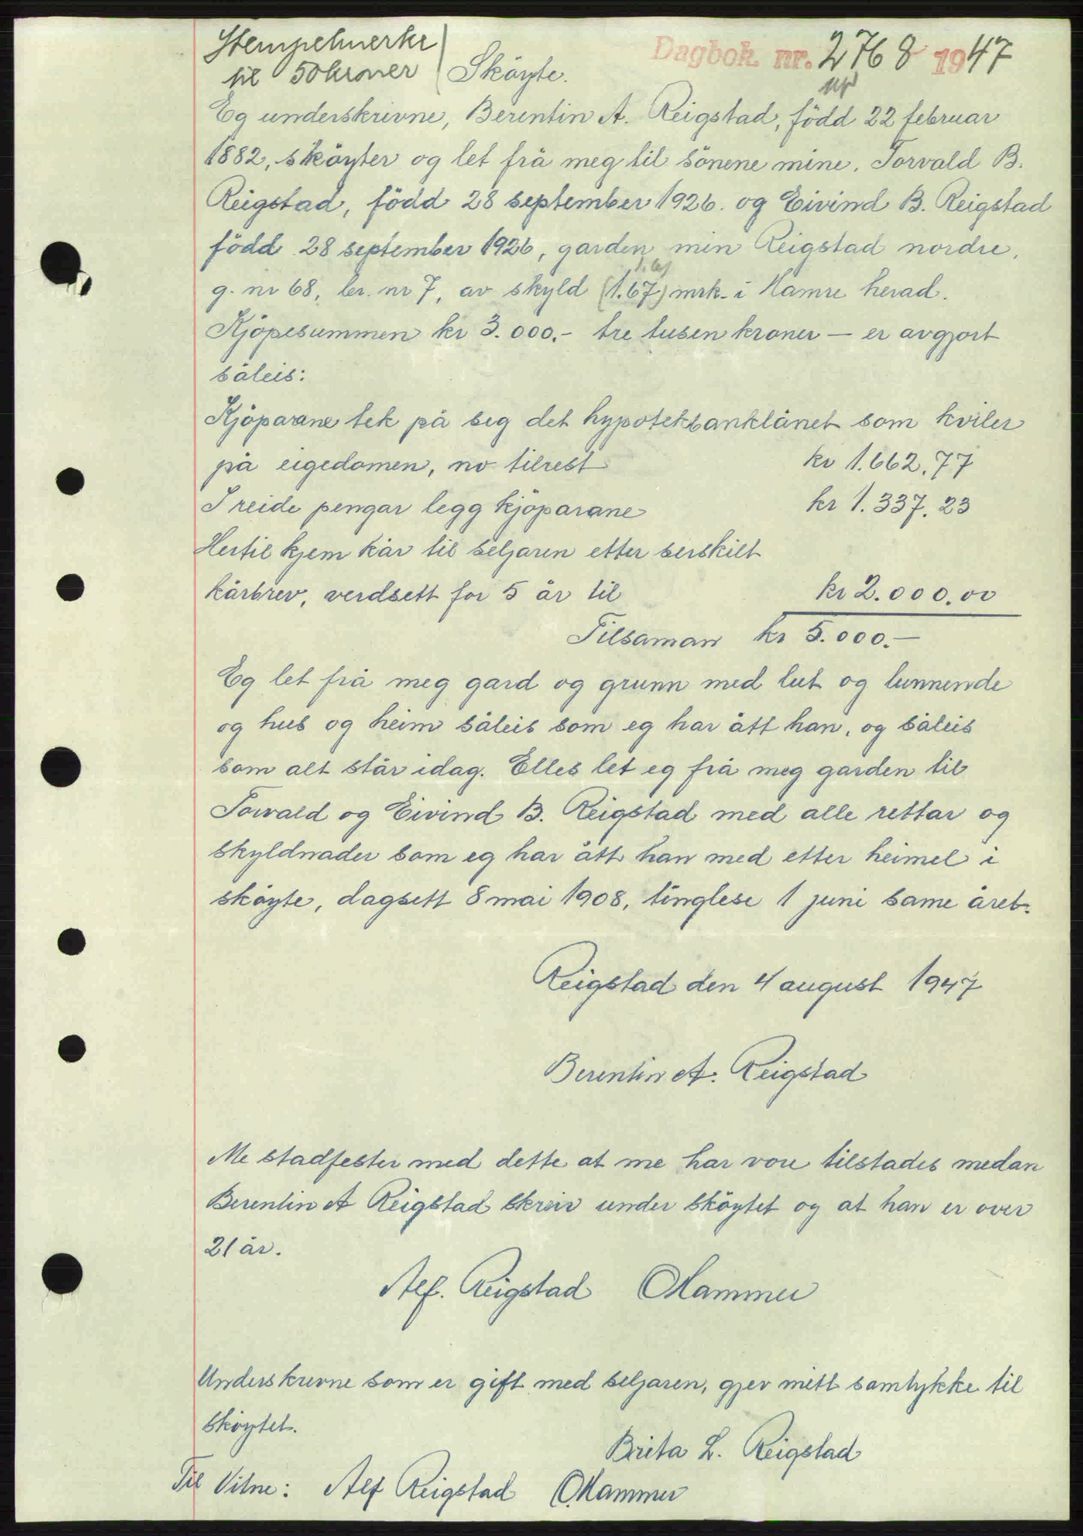 Stempelmerke
til 50 kroner
Skøyte.
Dagbok nr. 2768 1947
Eg underskrivne, Berentin A. Reigstad, född 22 februar
1882, sköyter og let frå meg til sönene mine, Torvald B.
Reigstad, född 28 september 1926. og Eivind B. Reigstad
född 28 september 1926, garden min Reigstad nordre,
g. nr 68, br. nr 7, av skyld (1.67) mrk. i Hamre herad.
Kjöpesummen kr 3.000.- tre tusen kroner — er avgjort
såleis:
Kjöparane tek på seg det hypotekbanklånet som kviler
på eigedomen, no tilrest kr 1.662,77
I reide pengar legg kjöparane kr 1.337.23
Hertil kjem kår til seljaren etter serskilt
kårbrev, verdsett for 5 år til kr 2.000.00
Tilsaman kr 5.000.—
Eg let frå meg gard og grunn med lut og lunnende
og hus og heim såleis som eg har ått han, og såleis
som alt står idag. Elles let eg frå meg garden til
Torvald og Eivind B. Reigstad med alle rettar og
skyldnader som eg har ått han med etter heimel i
sköyte, dagsett 8 mai 1908, tinglese 1 juni same året.
Reigstad den 4 august 1947
Berentin A. Reigstad
Me stadfester med dette at me har vore tilstades medan
Berentin A Reigstad skreiv under sköytet og at han er over
21 år.
Alf. Reigstad O Hammer
Underskrivne som er gift med seljaren, gjev mitt samtykke til
sköytet.
Brita L. Reigstad
Til Vitne: Alf Reigstad O. Hammer